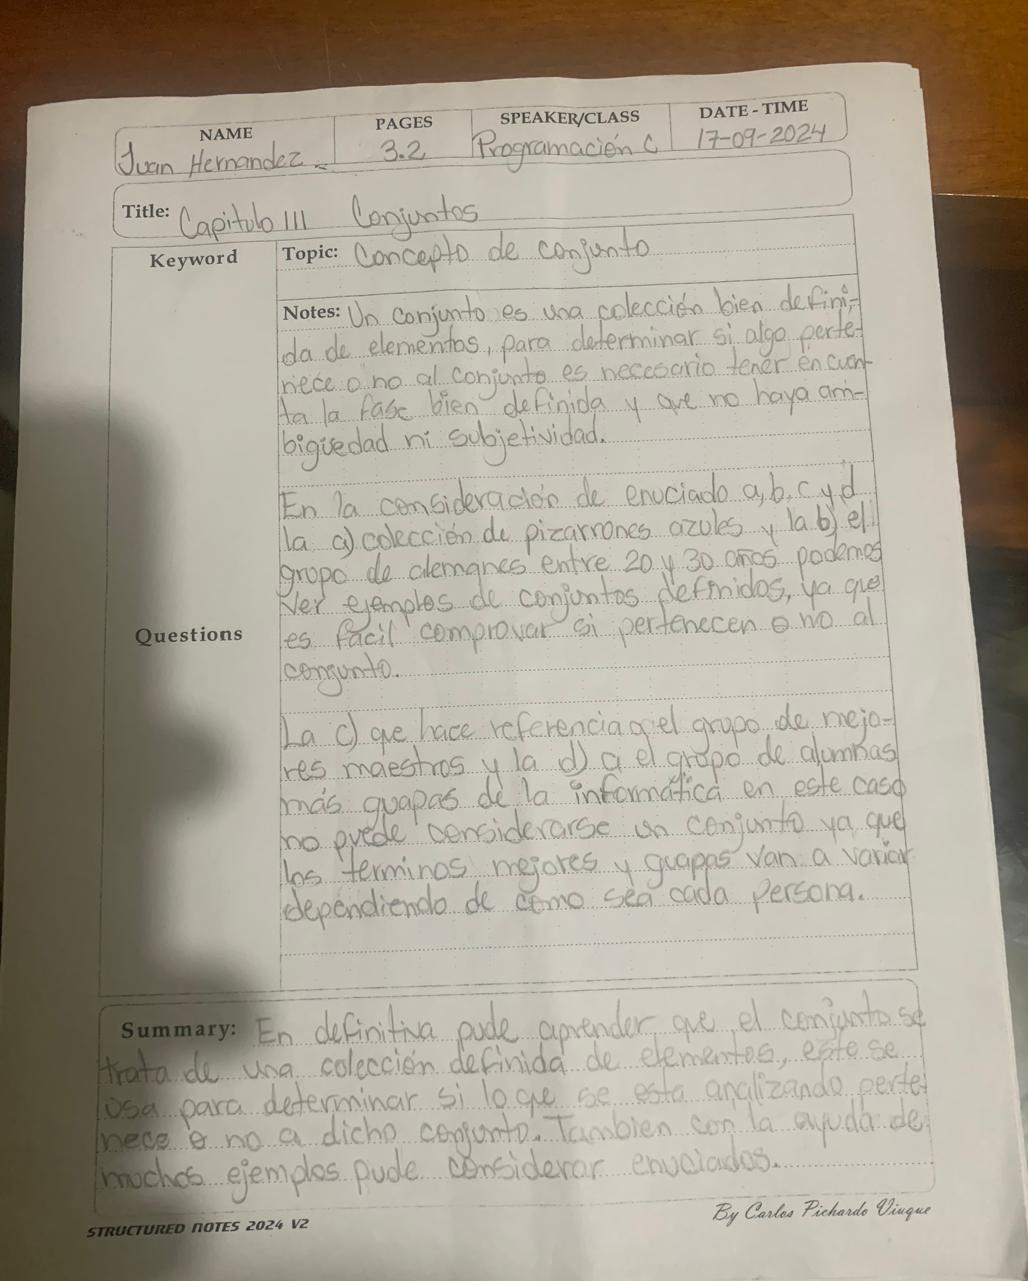 NAME PAGES SPEAKER/CLASS DATE - TIME
Juan Hernandez 3.2 Programación C 17-09-2024
Title: Capitulo III Conjuntos
Keyword
Topic: Concepto de conjunto
Notes: Un conjunto es una colección bien defini-
da de elementos, para determinar si algo perte-
nece o no al conjunto es necesario tener en cuen-
ta la fase bien definida y que no haya am-
bigüedad ni subjetividad.
En la consideración de enuciado a, b, c y d
la a) colección de pizarrones azules y la b) el
grupo de alemanes entre 20 y 30 años podemos
ver ejemplos de conjuntos definidos, ya que
Questions
es facil comprovar si pertenecen o no al
congunto.
La c) que hace referencia a el grupo de mejo-
res maestros y la d) a el grupo de alumnas
más guapas de la informática en este caso
no puede considerarse un conjunto ya que
los terminos mejores y guapas van a variar
dependiendo de como sea cada persona.
Summary: En definitiva pude aprender que el conjunto se
trata de una colección definida de elementos, este se
usa para determinar si lo que se esta analizando perte-
nece o no a dicho conjunto. Tambien con la ayuda de
muchos ejemplos pude considerar enuciados.
STRUCTURED NOTES 2024 V2
By Carlos Pichardo Viuque